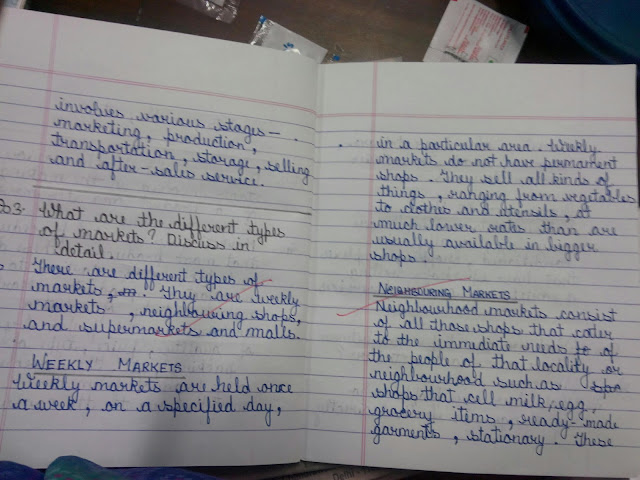 involves various stages - .
marketing, production,
transportation, storage, selling
and after-sales service.
3. What are the different types
of markets? Discuss in
detail.
There are different types of
markets, . They are weekly
markets, neighbouring shops,
and supermarkets and malls.
WEEKLY MARKETS
Weekly markets are held once
a week, on a specified day,
in a particular area. Weekly
markets do not have permanent
shops. They sell all kinds of
things, ranging from vegetables
to clothes and utensils, at
much lower rates than are
usually available in bigger
shops.
NEIGHBOURING MARKETS
Neighbourhood markets consist
of all those shops that cater
to the immediate needs of
the people of that locality or
neighbourhood such as
shops that cell milk, egg,
grocery items, ready-made
garments, stationary. These